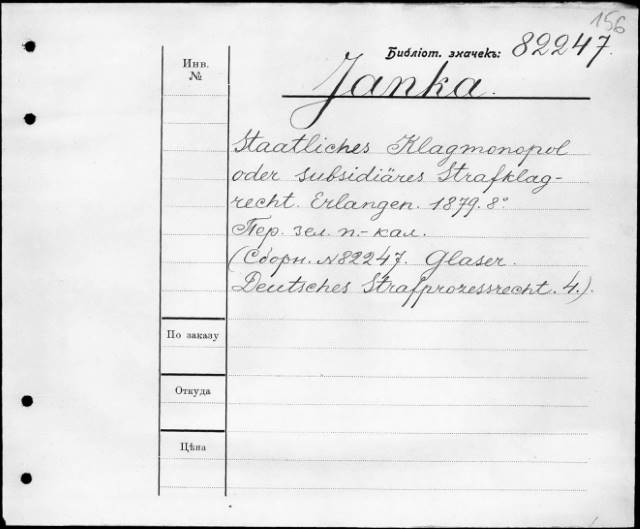 156
Библіот. значекъ: 82247.
Инв.
№
Janka.
Staatliches Klagmonopol
oder subsidiäres Strafklag-
recht. Erlangen. 1879. 8°
Пер. зел. п.-кал.
(Сборн. №82247. Glaser.
Deutsches Strafprozessrecht. 4.).
По заказу
Откуда
Цѣна